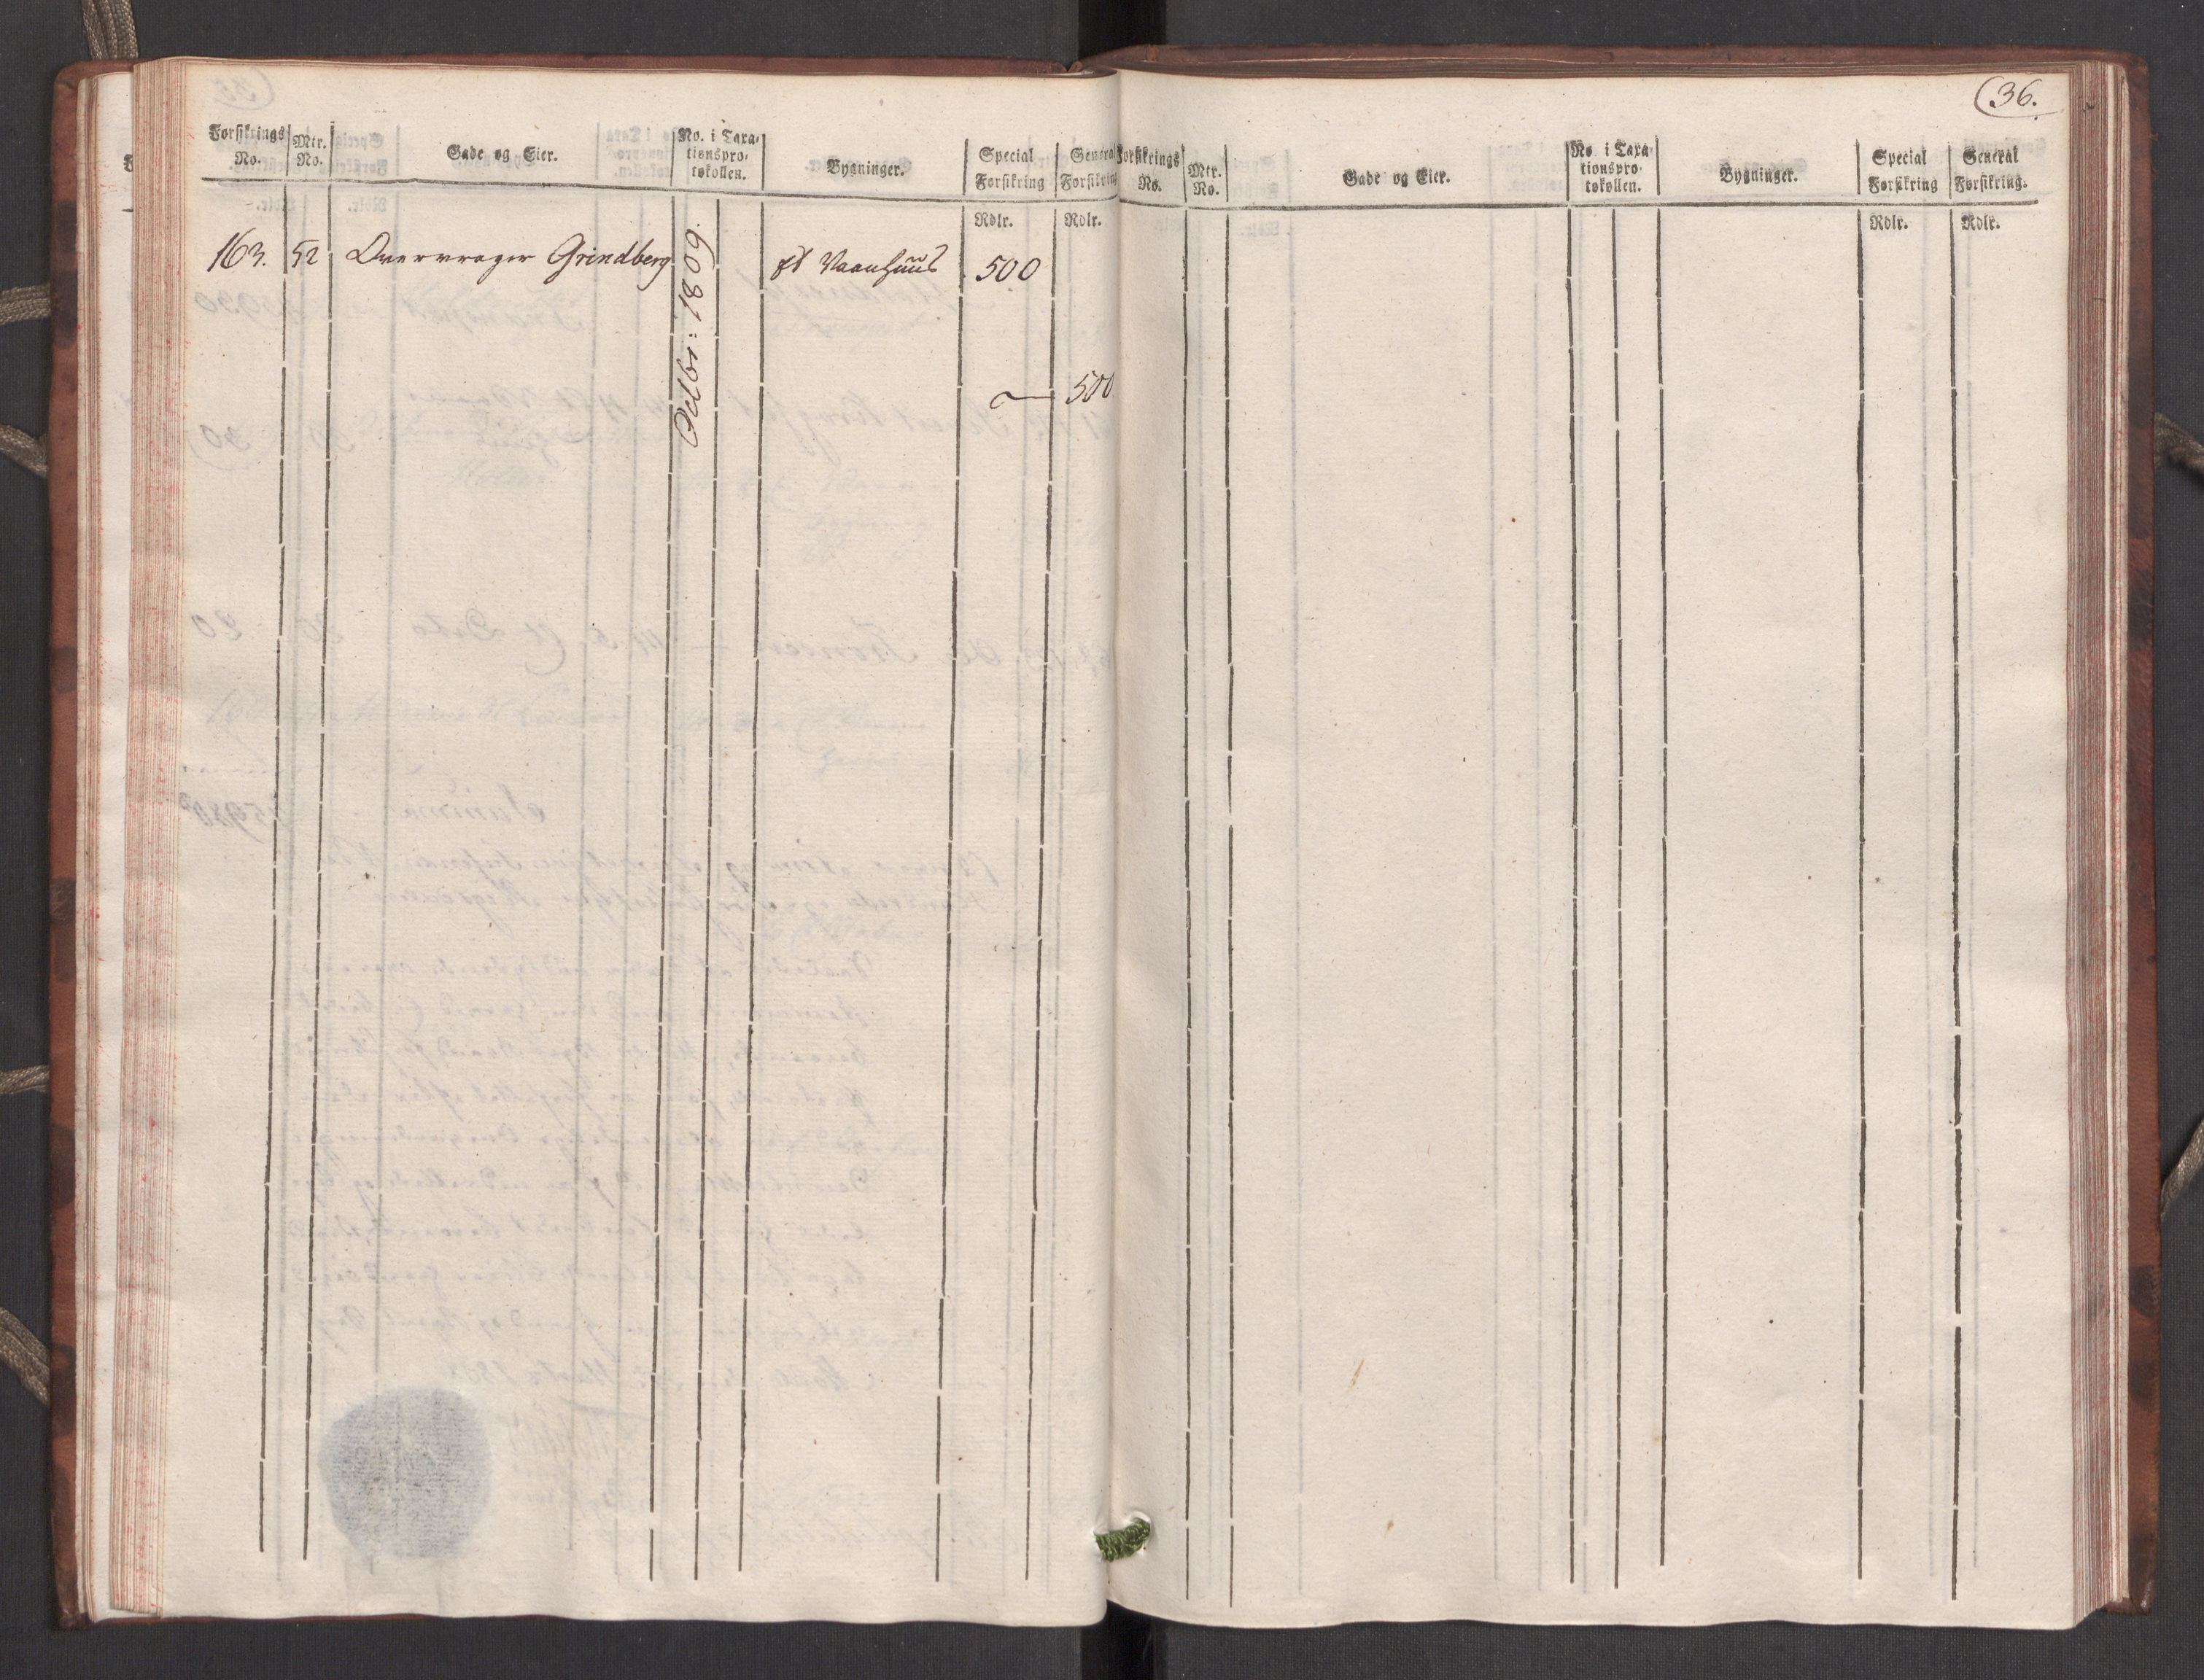 Forsikrings No. Mtr. No. Gade og Eier. No. i Taxationsprotokollen. Bygninger. Special Forsikring General Forsikring
Rdlr. Rdlr.
163. 52 Overvrager Grindberg Octbr: 1809. et Vaanhuus 500
500
36.
Forsikrings No. Mtr. No. Gade og Eier. No. i Taxationsprotokollen. Bygninger. Special Forsikring General Forsikring.
Rdlr. Rdlr.